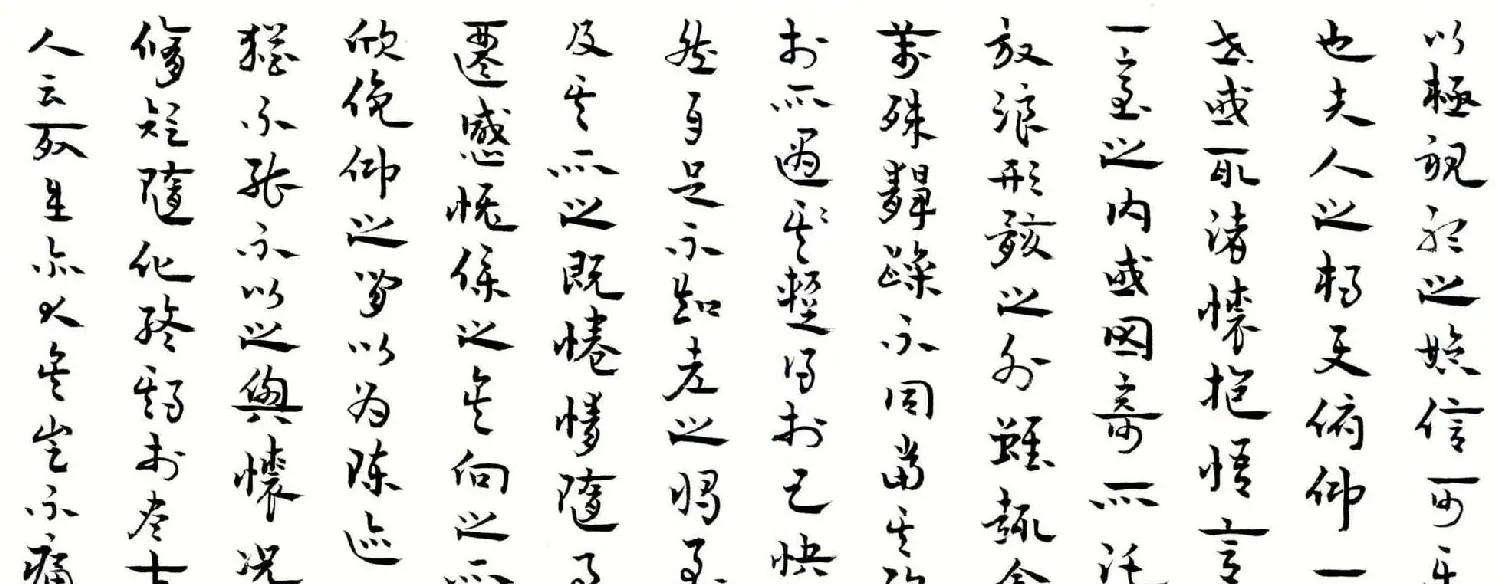 以極視聽之娛信可樂
也夫人之相與俯仰一
世或取諸懷抱悟言
一室之內或因寄所託
放浪形骸之外雖趣舍
萬殊靜躁不同當其欣
於所遇蹔得於己快
然自足不知老之將至
及其所之既惓情隨事
遷感慨係之矣向之所
欣俛仰之間以為陳迹
猶不能不以之興懷況
脩短隨化終期於盡古
人云死生亦大矣豈不痛